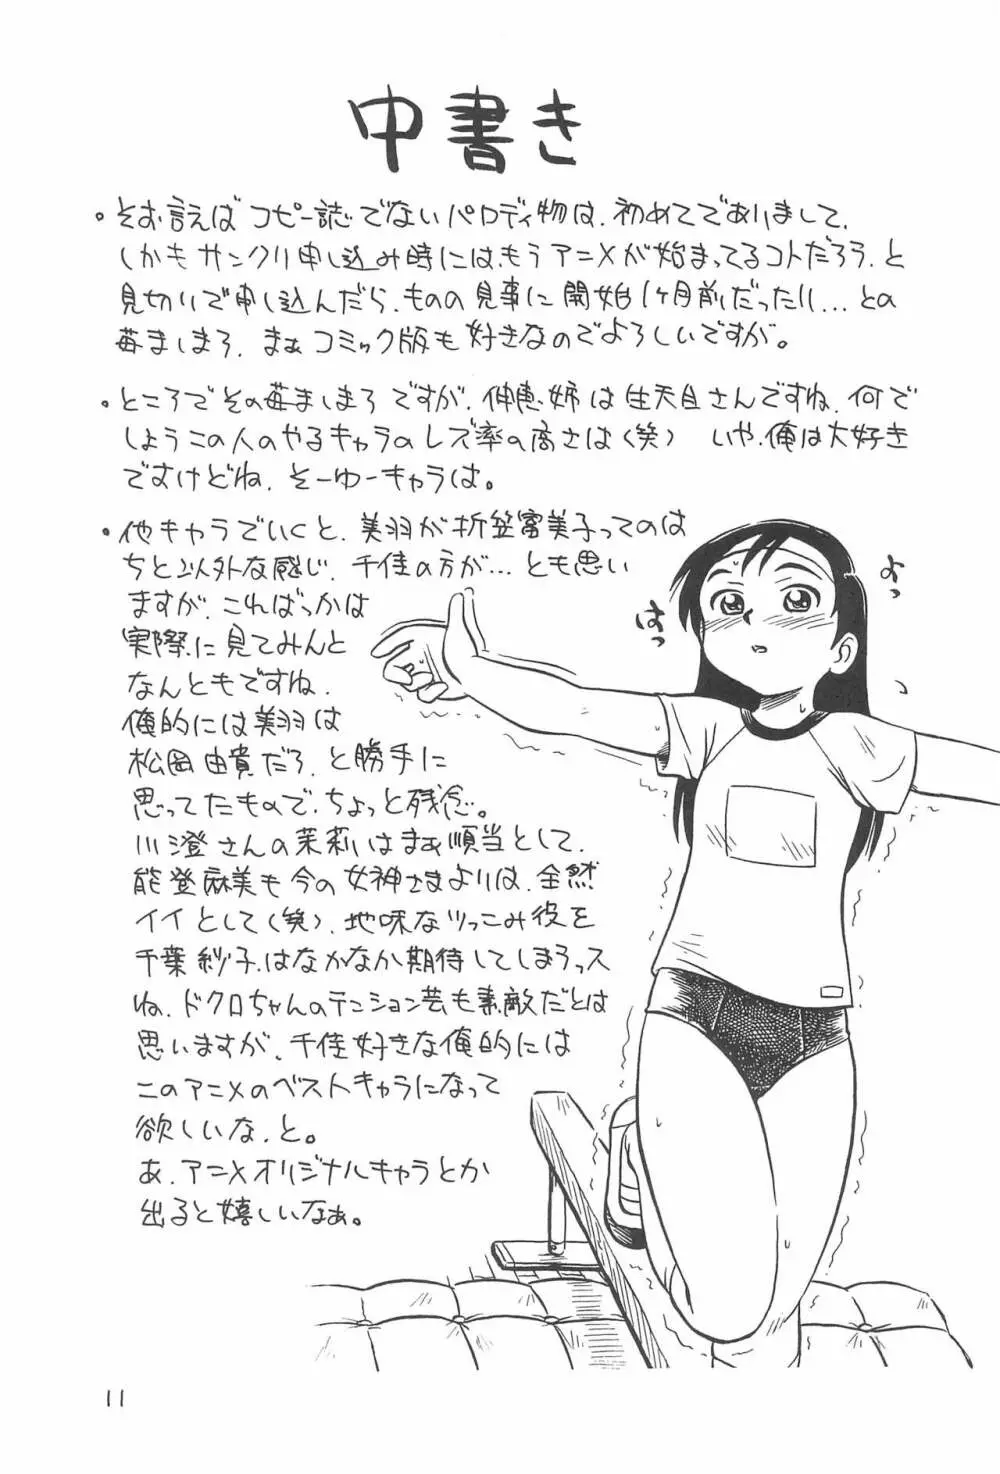 中書き
。そお言えば コピー誌でないパロディ物は、初めてでありまして、
しかもサンクリ申し込み時には、もうアニメが始まってるコトだろう、と
見切りで申し込んだら、ものの見事に開始1ヶ月前だったり…との
苺ましまろ、まぁコミック版も好きなのでよろしいですが。
。ところでその苺ましまろですが、伸恵姉は生天目さんですね、何で
しょうこの人のやるキャラのレズ率の高さは(笑) いや、俺は大好き
ですけどね、そーゆーキャラは。
。他キャラでいくと、美羽が折笠富美子ってのは
ちと以外な感じ、千佳の方が…とも思い
ますが、こればっかは
実際に見てみんと
なんともですね、
俺的には美羽は
松岡由貴だろ、と勝手に
思ってたもので、ちょっと残念。
川澄さんの茉莉はまぁ順当として、
能登麻美も今の女神さまよりは、全然
イイとして(笑)、地味なツっこみ役を
千葉紗子、はなかなか期待してしまうっス
ね、ドクロちゃんのテンション芸も素敵だとは
思いますが、千佳好きな俺的には
このアニメのベストキャラになって
欲しいな、と。
あ、アニメオリジナルキャラとか
出ると嬉しいなぁ。
はっ
よっ
11